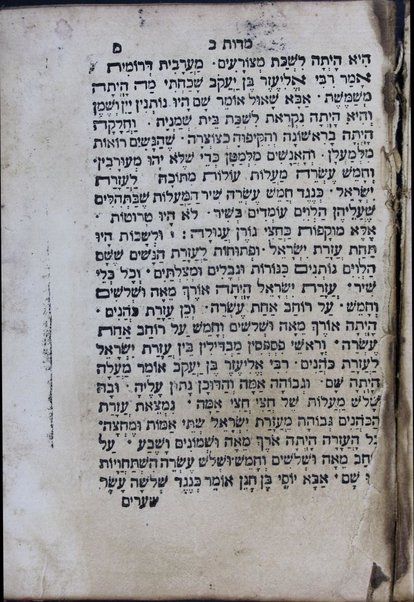 מדות ב ס
היא היתה לשכת מצורעים · מערבית דרומית
אמר רבי אליעזר בן יעקב שכחתי מה היתה
משמשת · אבא שאול אומר שם היו נותנין יין ושמן
והיא היתה נקראת לשכת בית שמניה · וחלקה
היתה בראשונה והקיפוה כצוצרה · שהנשים רואות
מלמעלן · והאנשים מלמטן כדי שלא יהו מעורבין ·
וחמש עשרה מעלות עולות מתוכה לעזרת
ישראל · כנגד חמש עשרה שיר המעלות שבתהלים
שעליהן הלוים עומדים בשיר · לא היו טרוטות
אלא מוקפות כחצי גורן עגולה : ו ולשכות היו
תחת עזרת ישראל · ופתוחות לעזרת הנשים ששם
הלוים נותנים כנורות ונבלים ומצלתים · וכל כלי
שיר · עזרת ישראל היתה אורך מאה ושלשים
וחמש · על רוחב אחת עשרה · וכן עזרת כהנים ·
היתה אורך מאה ושלשים וחמש על רוחב אחת
עשרה · וראשי פספסין מבדילין בין עזרת ישראל
לעזרת כהנים · רבי אליעזר בן יעקב אומר מעלה
היתה שם · וגבוהה אמה והדוכן נתון עליה · ובה
שלש מעלות של חצי חצי אמה · נמצאת עזרת
הכהנים גבוהה מעזרת ישראל שתי אמות ומחצה ·
כל העזרה היתה אורך מאה ושמונים ושבע · על
רוחב מאה ושלשים וחמש · ושלש עשרה השתחויות
היו שם · אבא יוסי בן חנן אומר כנגד שלשה עשר
שערים